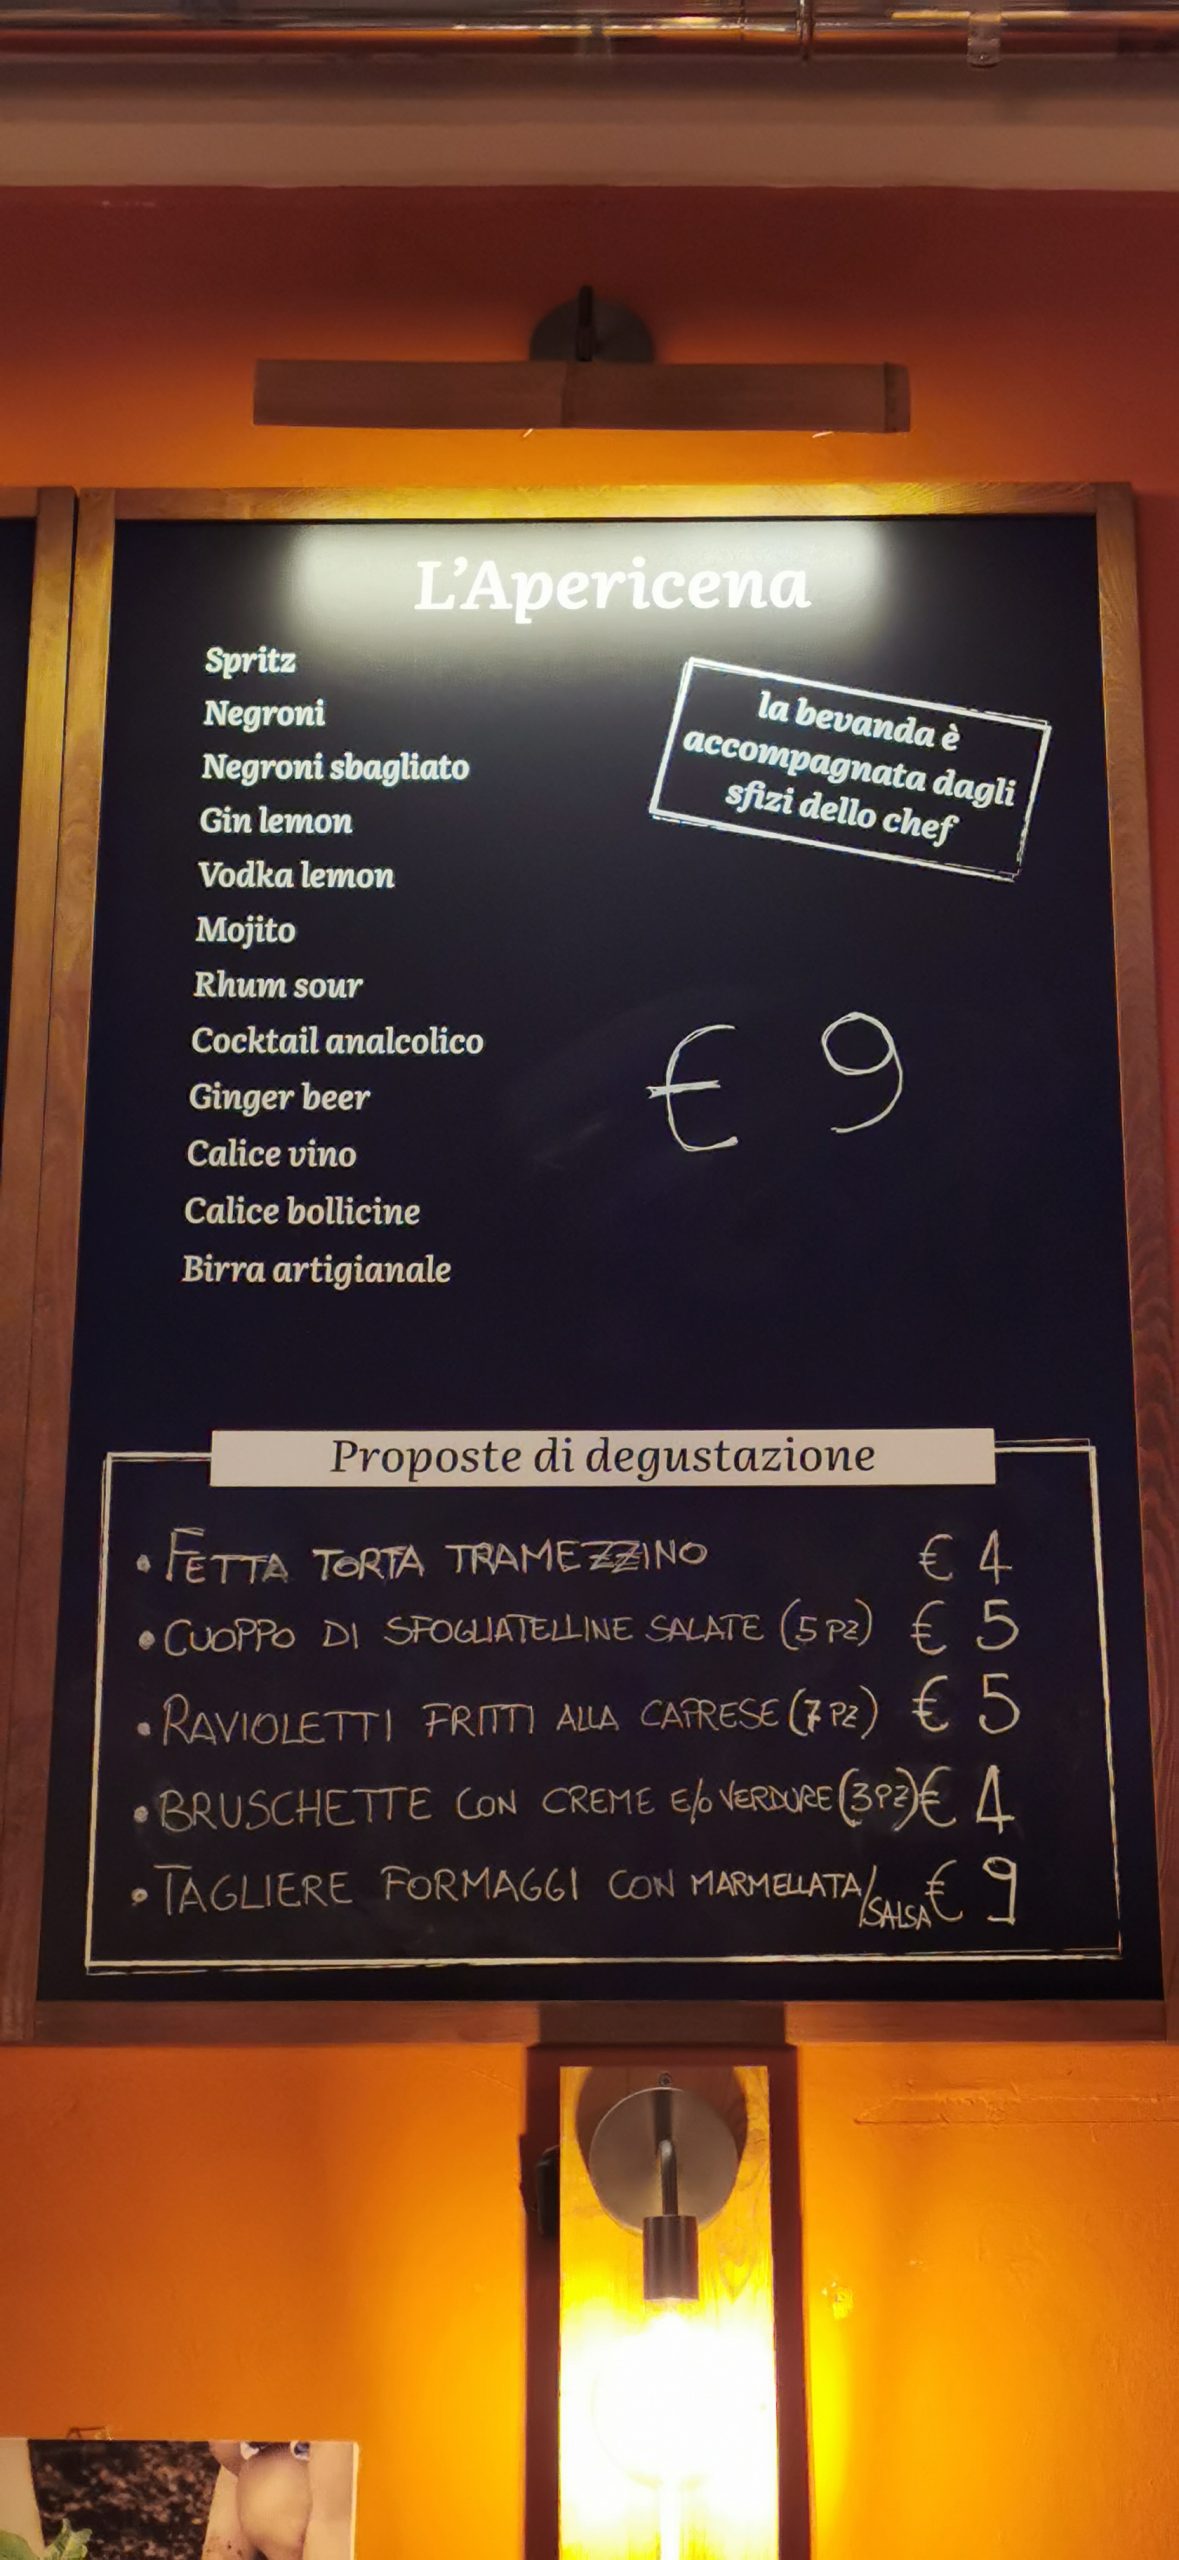 L'Apericena
Spritz
Negroni
Negroni sbagliato
Gin lemon
Vodka lemon
Mojito
Rhum sour
Cocktail analcolico
Ginger beer
Calice vino
Calice bollicine
Birra artigianale
la bevanda è
accompagnata dagli
sfizi dello chef
€ 9
Proposte di degustazione
• FETTA TORTA TRAMEZZINO € 4
• CUOPPO DI SFOGLIATELLINE SALATE (5 PZ) € 5
• RAVIOLETTI FRITTI ALLA CAPRESE (7 PZ) € 5
• BRUSCHETTE CON CREME E/O VERDURE (3 PZ) € 4
• TAGLIERE FORMAGGI CON MARMELLATA/SALSA € 9